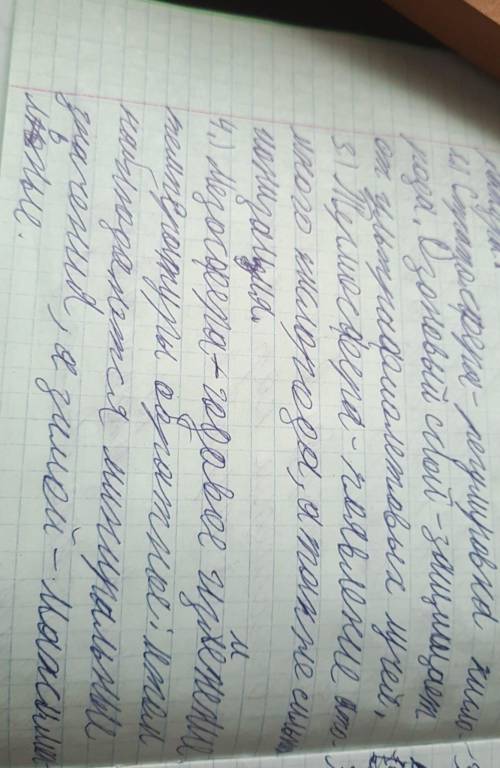 2.) Стратосфера - регулировка кисло-
рода. Озоновый слой - защищает
от ультрафиолетовых лучей.
3) Термосфера - появление ато-
много кислорода, а также сильн
ионизация.
4.) Мезосфера - годовое изменение
температуры обратное: летом
наблюдаются минимальные
значения, а зимой - максима-
льные.